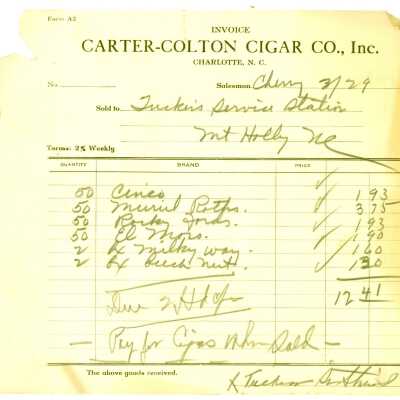 Form A2
INVOICE
CARTER-COLTON CIGAR CO., Inc.
CHARLOTTE, N. C.
No. Salesman Cherry 2/29
Sold to Tucker's Service Station
Mt Holly NC
Terms: 2% Weekly
QUANTITY BRAND PRICE
50 Cinco 1 93
50 Muriel 3 75
50 Rocky Fords 1 93
50 El Moro 1 90
2 bx Milky way 1 60
2 bx Beech nut 1 30
12 41
Due
Pay for Cigars When Sold
The above goods received.
X Tucker